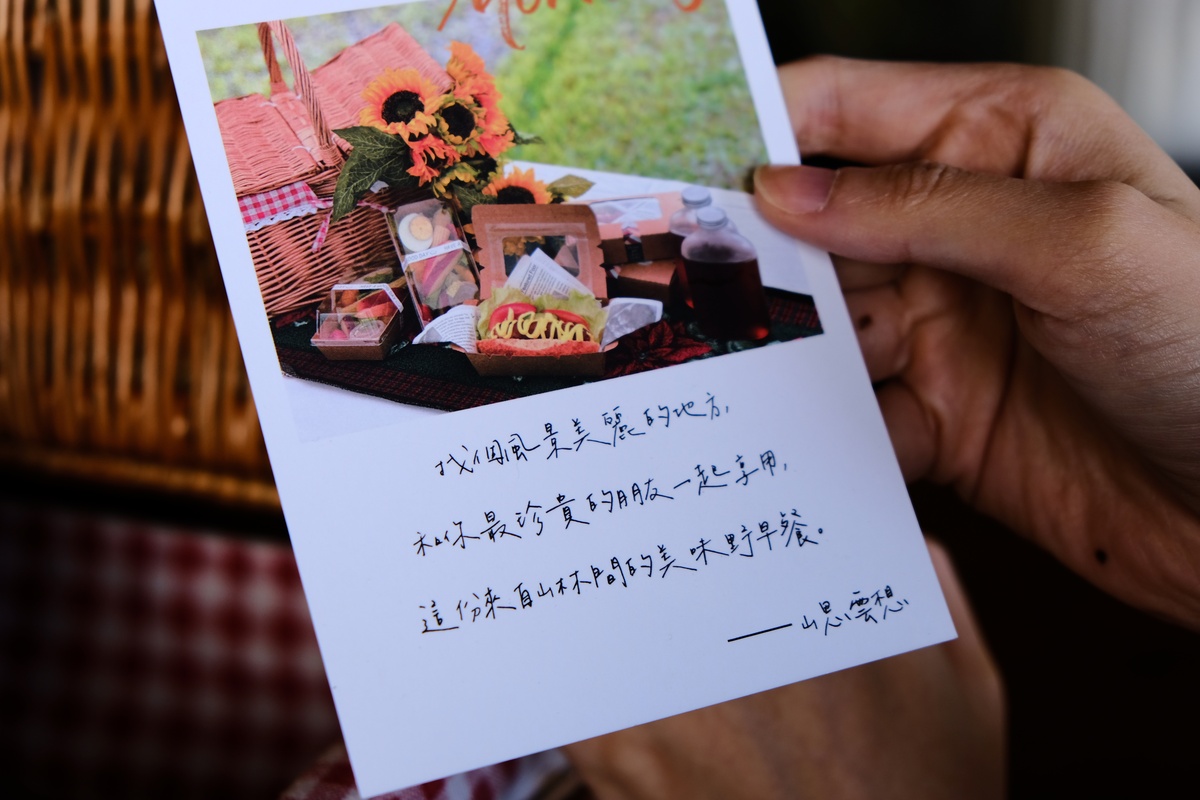 找個風景美麗的地方,
和你最珍貴的朋友一起享用,
這份來自山林間的美味野早餐。
——山思雲想